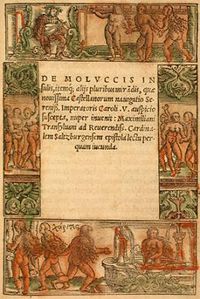 DE MOLVCCIS IN
sulis, itemq; alijs pluribus mirãdis, quæ
nouissima Castellanorum nauigatio Se-
reniss. Imperatoris Caroli. V. auspicio
suscepta, nuper inuenit: Maximiliani
Transyluani ad Reuerendiss. Cardina-
lem Saltzburgensem epistola lectu per-
quam iucunda.